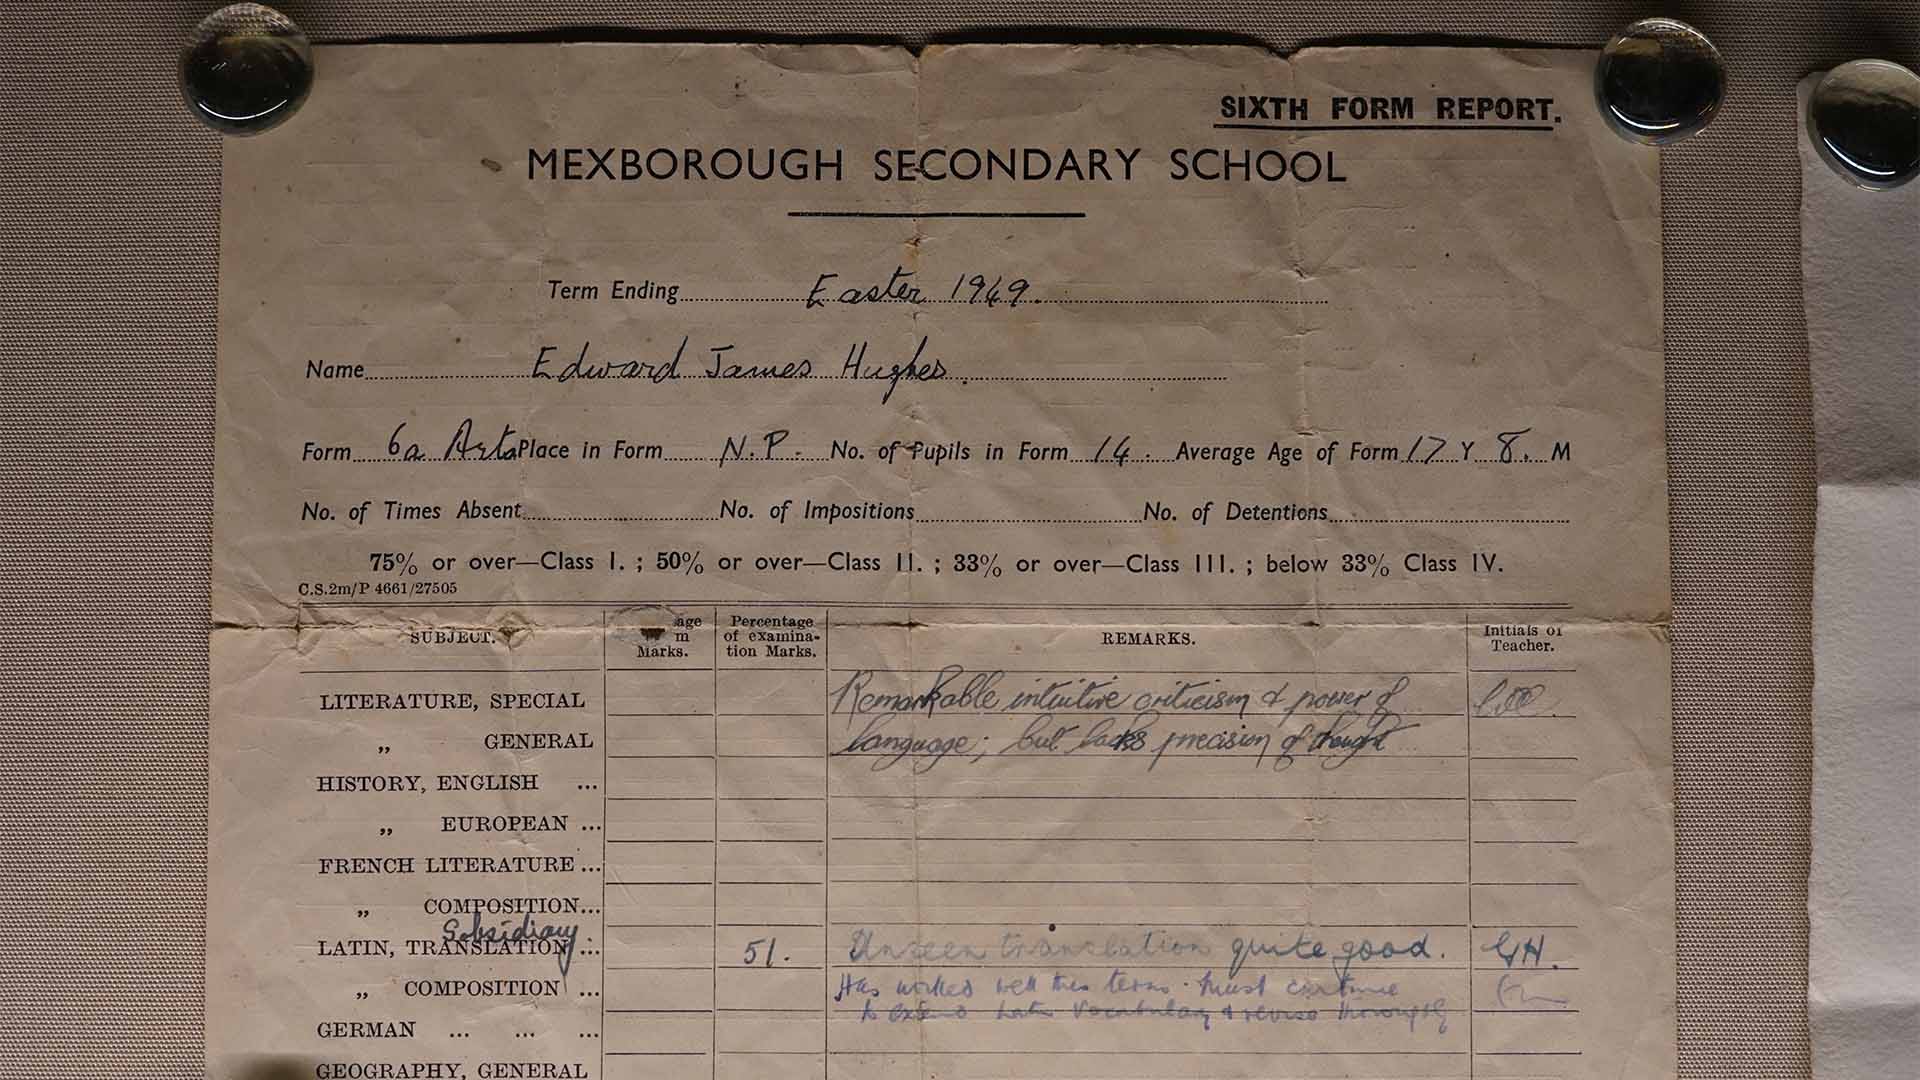 SIXTH FORM REPORT.
MEXBOROUGH SECONDARY SCHOOL
Term Ending Easter 1949.
Name Edward James Hughes.
Form 6a Arts Place in Form N.P. No. of Pupils in Form 14. Average Age of Form 17 Y 8. M
No. of Times Absent No. of Impositions No. of Detentions
75% or over—Class I. ; 50% or over—Class II. ; 33% or over—Class III. ; below 33% Class IV.
C.S.2m/P 4661/27505
SUBJECT. Marks. Percentage of examina-tion Marks. REMARKS. Initials of Teacher.
LITERATURE, SPECIAL Remarkable intuitive criticism & power of
„ GENERAL language; but lacks precision of thought
HISTORY, ENGLISH ...
„ EUROPEAN ...
FRENCH LITERATURE ...
„ COMPOSITION...
Subsidiary
LATIN, TRANSLATION ... 51. Unseen translation quite good. GH.
„ COMPOSITION ... Has worked well this term. Must continue
to extend Latin vocabulary & revise thoroughly
GERMAN ... ... ...
GEOGRAPHY, GENERAL